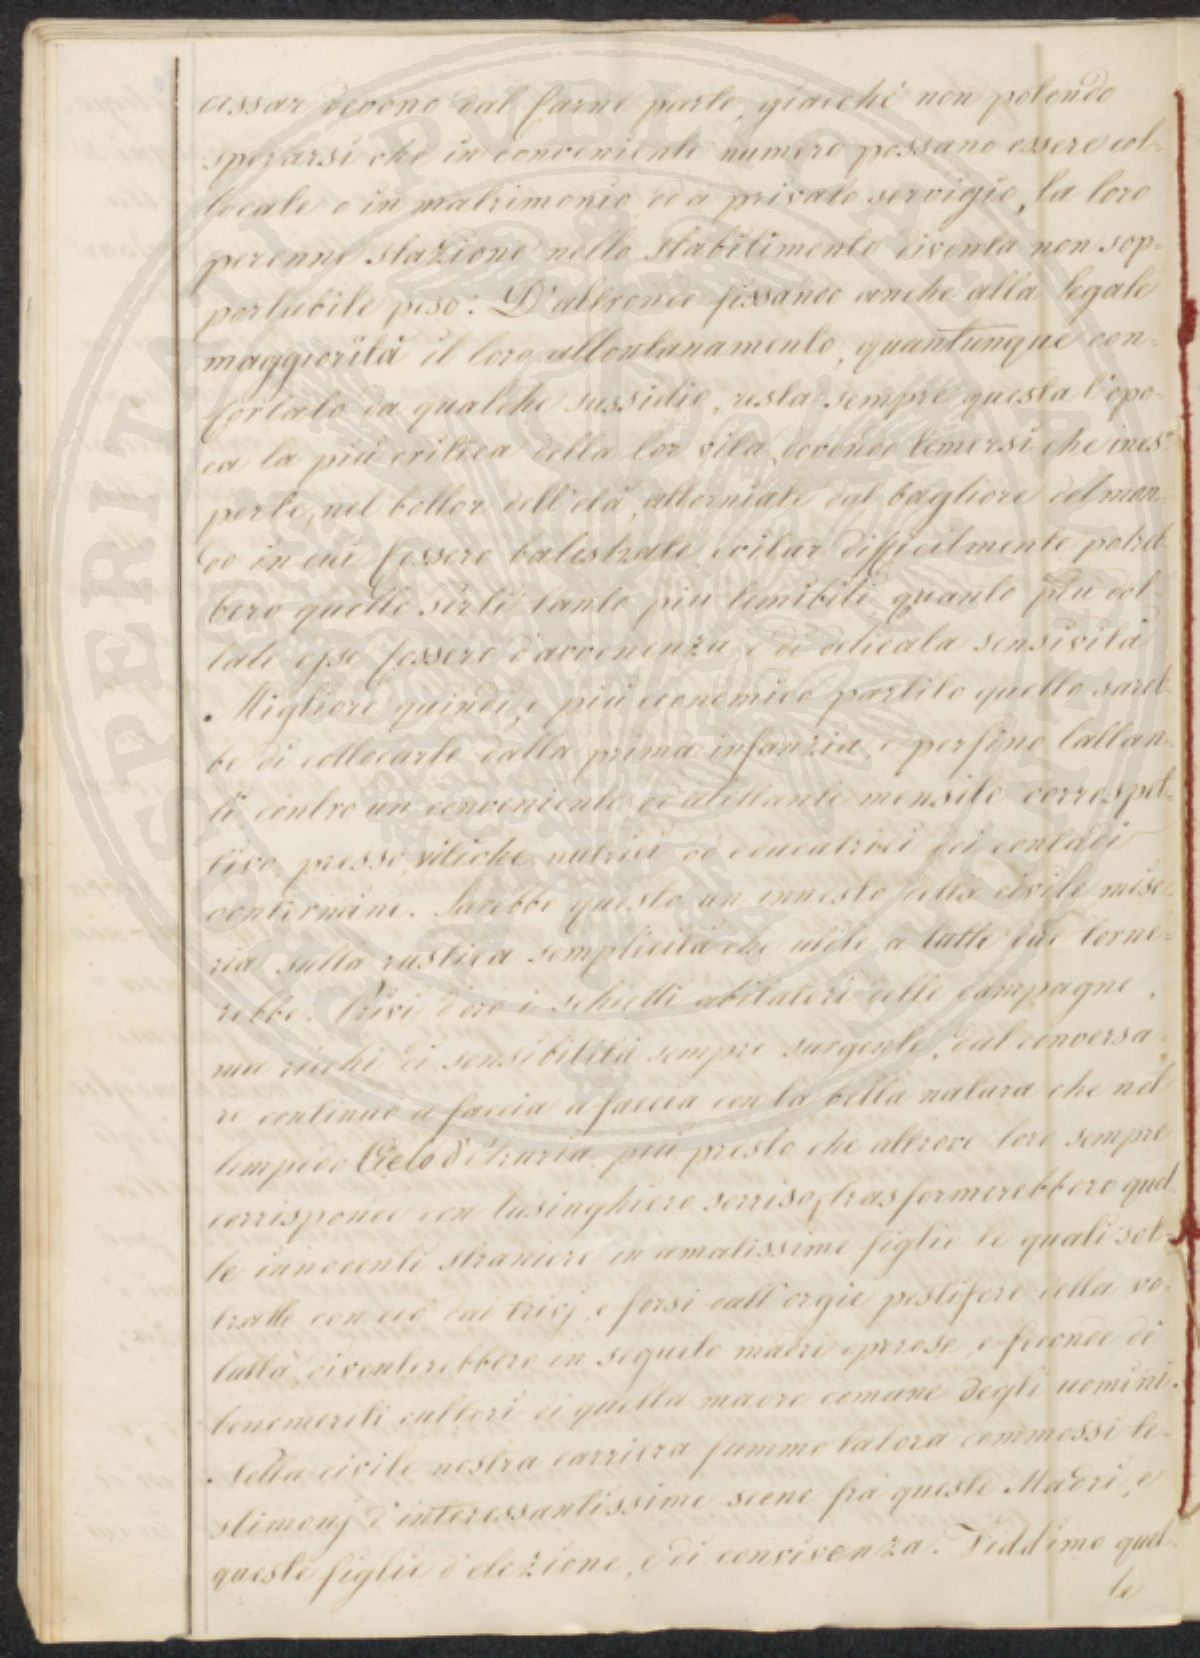 cessar devono dal farne parte, giacchè non potendo
sperarsi che in conveniente numero possano essere col=
locate o in matrimonio, od a privato servigio, la loro
perenne stazione nello Stabilimento diventa non sop=
portabile peso: D'altronde fissando anche alla legale
maggiorità il loro allontanamento, quantunque con=
fortato da qualche sussidio, resta sempre questa l'epo=
ca la più critica della lor vita, dovendo temersi che ines=
perte, nel bollor dell'età, attorniate dal bagliore del mon=
do in cui fossero balestrate, evitar difficilmente potreb=
bero quelle sirti tanto più temibili quanto più do=
tate esse fossero d'avvenenza, e di delicata sensività
. Migliore quindi, e più economico partito quello sareb=
be di collocarle dalla prima infanzia, e perfino lattan=
ti contro un conveniente, ed allettante mensile corrispet=
tivo presso viliche nutrici ed educatrici dei contadi
contermini. Sarebbe questo un innesto della civile mise=
ria sulla rustica semplicità che utile a tutte due torne=
rebbe. Privi d'oro i schietti abitatori delle campagne,
ma ricchi di sensibilità sempre surgente, dal conversa=
re continuo a faccia a faccia con la bella natura che nel
limpido Cielo d'Etruria, più presto che altrove loro sempre
corrisponde con lusinghiero sorriso, trasformerebbero quel=
le innocenti straniere in amatissime figlie le quali sot=
tratte con ciò dai trivj, e forsi dall'orgie pestifere della
diventerebbero in seguito madri operose, e feconde di
benemeriti cultori di quella madre comune degli uomini.
. Nella civile nostra carriera fummo talora commossi te=
stimonj d'interessantissime scene fra queste Madri, e
queste figlie d'elezione, e di convivenza. Viddimo quel=
le